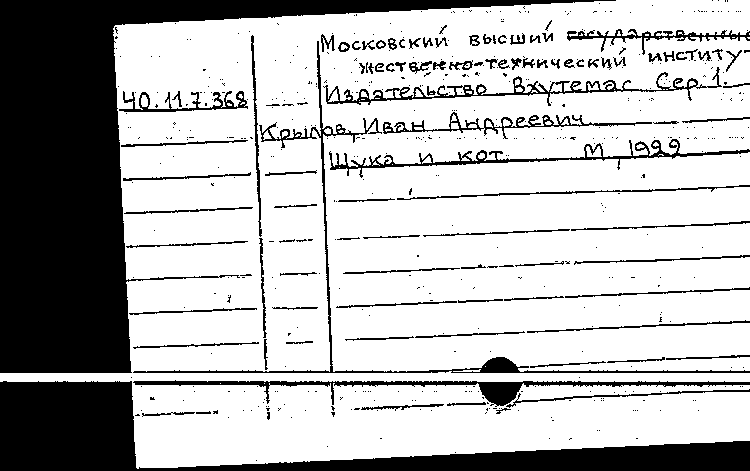 Московский высший государственные
жественно-технический институт
40.11.7.368 Издательство Вхутемас Сер. 1.
Крылов, Иван Андреевич
Щука и кот. М, 1922